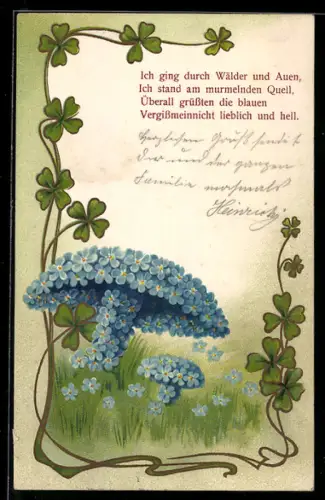 Ich ging durch Wälder und Auen,
Ich stand am murmelnden Quell,
Überall grüßten die blauen
Vergißmeinnicht lieblich und hell.
Herzlichen Gruß sendet
Dir und der ganzen
Familie nochmals